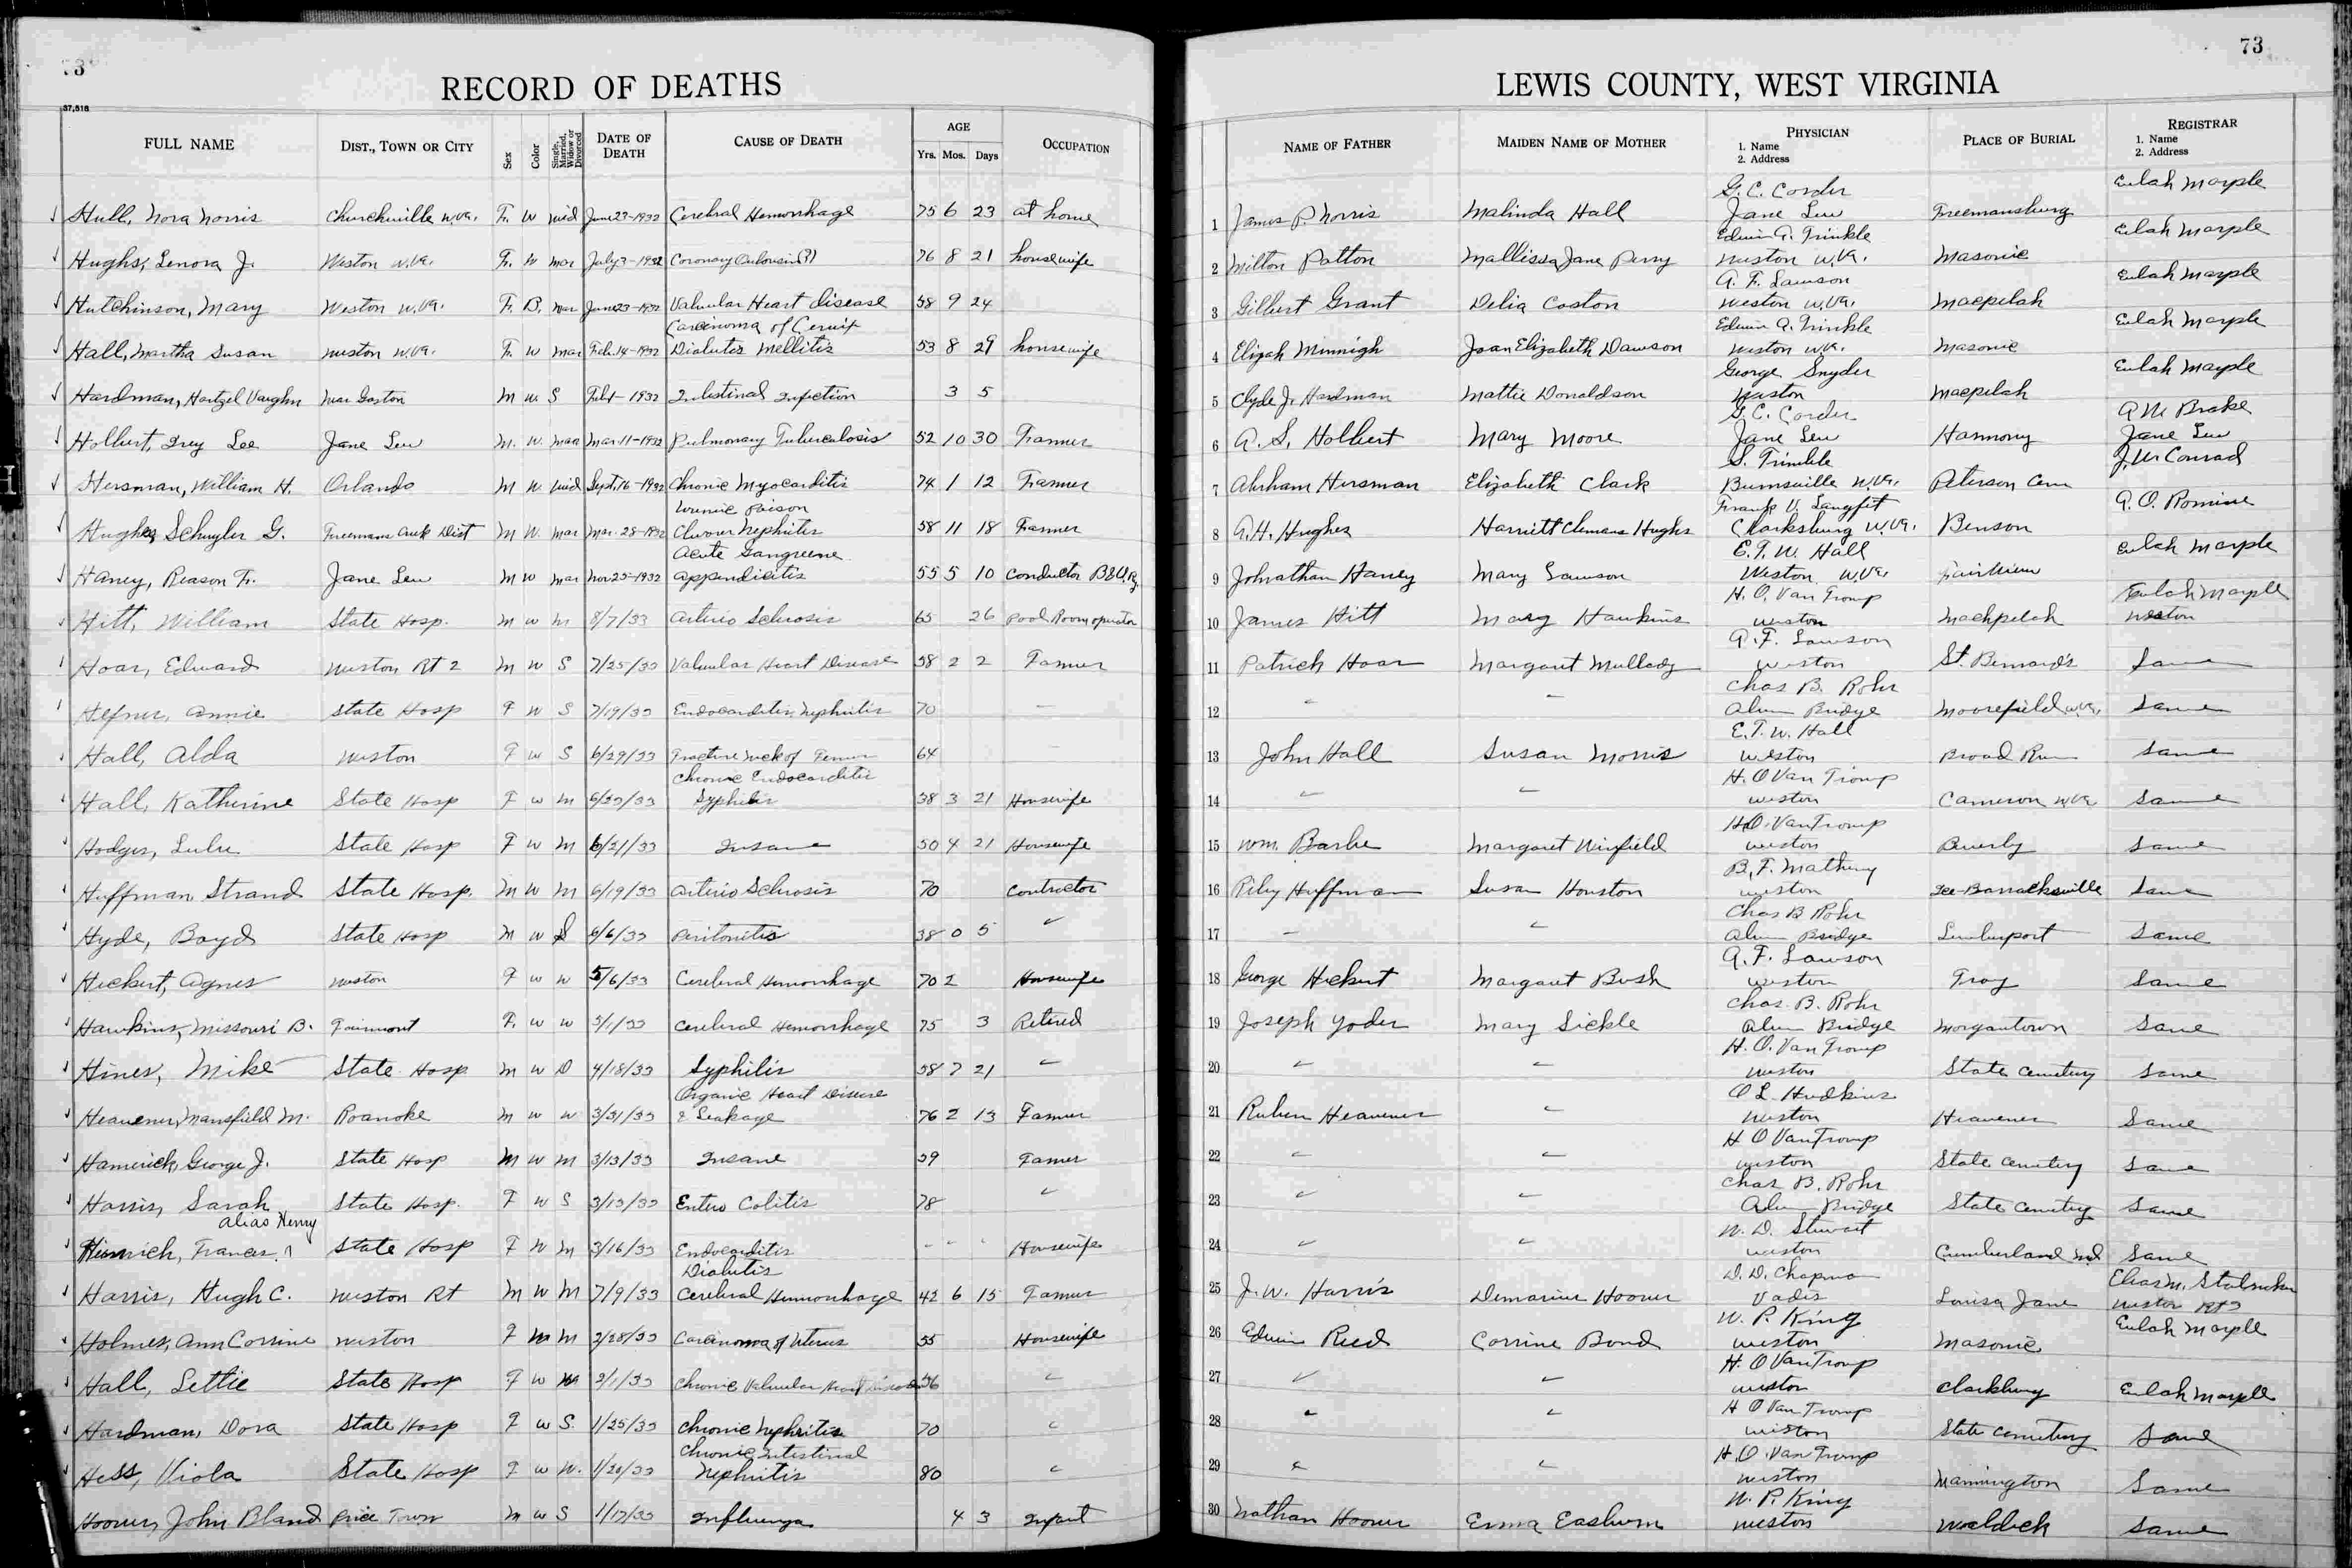 73
73
RECORD OF DEATHS
LEWIS COUNTY, WEST VIRGINIA
37,518
FULL NAME DIST., TOWN OR CITY Sex Color Single, Married, Widow or Divorced DATE OF DEATH CAUSE OF DEATH AGE Yrs. Mos. Days OCCUPATION
NAME OF FATHER MAIDEN NAME OF MOTHER PHYSICIAN 1. Name 2. Address PLACE OF BURIAL REGISTRAR 1. Name 2. Address
G. C. Corder Eulah Marple
Hull, Nora Norris Churchville W.Va. F. W Wid June 23-1932 Cerebral Hemorrhage 75 6 23 at home 1 James P. Norris Malinda Hall Jane Lew Freemansburg
Edwin A. Trinkle Eulah Marple
Hughs, Lenora J. Weston W.Va. F. W Mar July 3-1932 Coronary 76 8 21 housewife 2 Milton Patton Mallissa Jane Perry Weston W.Va. Masonic
A. F. Lawson Eulah Marple
Hutchinson, Mary Weston W.Va. F. B. Mar June 23-1932 Valvular Heart disease 58 9 24 3 Gilbert Grant Delia Coston Weston W.Va. Macpelah
Carcinoma of Cervix Edwin A. Trinkle Eulah Marple
Hall, Martha Susan Weston W.Va. F. W Mar Feb. 14-1932 Diabetes Mellitis 53 8 29 housewife 4 Elizah Minnigh Joan Elizabeth Dawson Weston W.Va. Masonic
George Snyder Eulah Marple
Hardman, Hartzel Vaughn Near Gaston M W S Feb 1-1932 Intestinal Infection 3 5 5 Clyde J. Hardman Mattie Donaldson Weston Macpelah
G. C. Corder A M Brake
Holbert, Irey Lee Jane Lew M. W. Mar Mar 11-1932 Pulmonary Tuberculosis 52 10 30 Farmer 6 A. S. Holbert Mary Moore Jane Lew Harmony Jane Lew
S. Trimble J. W Conrad
Hersman, William H. Orlando M W. Wid Sept. 16-1932 Chronic Myocarditis 74 1 12 Farmer 7 Abraham Hersman Elizabeth Clark Burnsville W.Va. Peterson Cem
Poison Frank V. Langfit A. O. Romine
Hughes Schuyler G. Freemans Creek Dist M W. Mar Mar. 28-1932 Nephritis 58 11 18 Farmer 8 A. H. Hughes Harriett Clemans Hughs Clarksburg W.Va. Benson
Acute Gangreene E. T. W. Hall Eulah Marple
Haney, Reason Fr. Jane Lew M W Mar Nov 25-1932 Appendicitis 55 5 10 Conductor B&O Ry. 9 Johnathan Haney Mary Lawson Weston W.Va. Fairview
H. O. Van Tromp Eulah Marple
Hitt, William State Hosp. M W M 8/7/33 Arterio Sclerosis 65 26 Pool Room operator 10 James Hitt Mary Hawkins Weston Machpelah Weston
A. F. Lawson
Hoar, Edward Weston, Rt 2 M W S 7/25/33 Valvular Heart Disease 58 2 2 Farmer 11 Patrick Hoar Margaret Mullady Weston St. Bernard's Same
Chas B. Rohr
Hefner, Annie State Hosp F W S 7/19/33 Endocarditis, Nephritis 70 12 Alum Bridge Moorefield W.Va. Same
E. T. W. Hall
Hall, Alda Weston F W S 6/29/33 Fracture neck of Femur 64 13 John Hall Susan Morris Weston Broad Run Same
Chronic Endocarditis H. O Van Tromp
Hall, Katherine State Hosp F W M 6/23/33 Syphilis 38 3 21 Housewife 14 Weston Cameron W.Va Same
H.O. Van Tromp
Hodges, Lulu State Hosp F W M 6/21/33 Insane 50 4 21 Housewife 15 Wm. Barbe Margaret Winfield Weston Beverly Same
B. F. Matheny
Huffman Strand State Hosp. M W M 6/19/33 Arterio Sclerosis 70 Contractor 16 Riley Huffman Susan Houston Weston Barracksville Same
Chas B Rohr
Hyde, Boyd State Hosp M W S 6/6/33 Peritonitis 38 0 5 17 Alum Bridge Lumberport Same
A. F. Lawson
Hickert, Agnes Weston F W W 5/6/33 Cerebral Hemorrhage 70 2 Housewife 18 George Hickert Margaret Bush Weston Troy Same
Chas. B. Rohr
Hawkins, Missouri B. Fairmont F. W W 5/1/33 Cerebral Hemorrhage 75 3 Retired 19 Joseph Yoder Mary Sickle Alum Bridge Morgantown Same
H. O. Van Tromp
Hines, Mike State Hosp M W D 4/18/33 Syphilis 58 7 21 20 Weston State Cemetery Same
Organic Heart Disease O L. Hudkins
Heavener, Mansfield M. Roanoke M W W 3/31/33 & Leakage 76 2 13 Farmer 21 Ruben Heavener Weston Heavener Same
H O Van Tromp
Hamerick, George J. State Hosp M W M 3/13/33 Insane 59 Farmer 22 Weston State Cemetery Same
Chas B. Rohr
Harris, Sarah State Hosp. F W S 3/13/33 Entero Colitis 78 23 Alum Bridge State Cemetery Same
alias Henry W. D. Stewart
Himrich, Frances State Hosp F W M 3/16/33 Endocarditis Housewife 24 Weston Cumberland Md Same
Diabetis D. D. Chapman
Harris, Hugh C. Weston Rt M W M 7/9/33 Cerebral Hemorrhage 42 6 15 Farmer 25 J. W. Harris Demarius Hoover Vadis Louisa Jane Weston Rt 3
W. P. King Eulah Marple
Holmes, Ann Corrine Weston F M 2/28/33 Carcinoma of Uterus 55 Housewife 26 Edwin Reed Corrine Bond Weston Masonic
H. O Van Tromp
Hall, Lettie State Hosp F W 2/1/33 Chronic Valvular Heart Disease 56 27 Weston Clarksburg Eulah Marple
H O Van Tromp
Hardman, Dora State Hosp F W S. 1/25/33 Chronic Nephritis 70 28 Weston State Cemetery Same
Chronic Intestinal H. O. Van Tromp
Hess, Viola State Hosp F W W. 1/20/33 Nephritis 80 29 Weston Mannington Same
W. P. King
Hoover, John Bland Price Town M W S 1/17/33 Influenza 4 3 Infant 30 Nathan Hoover Erma Eastburn Weston Same